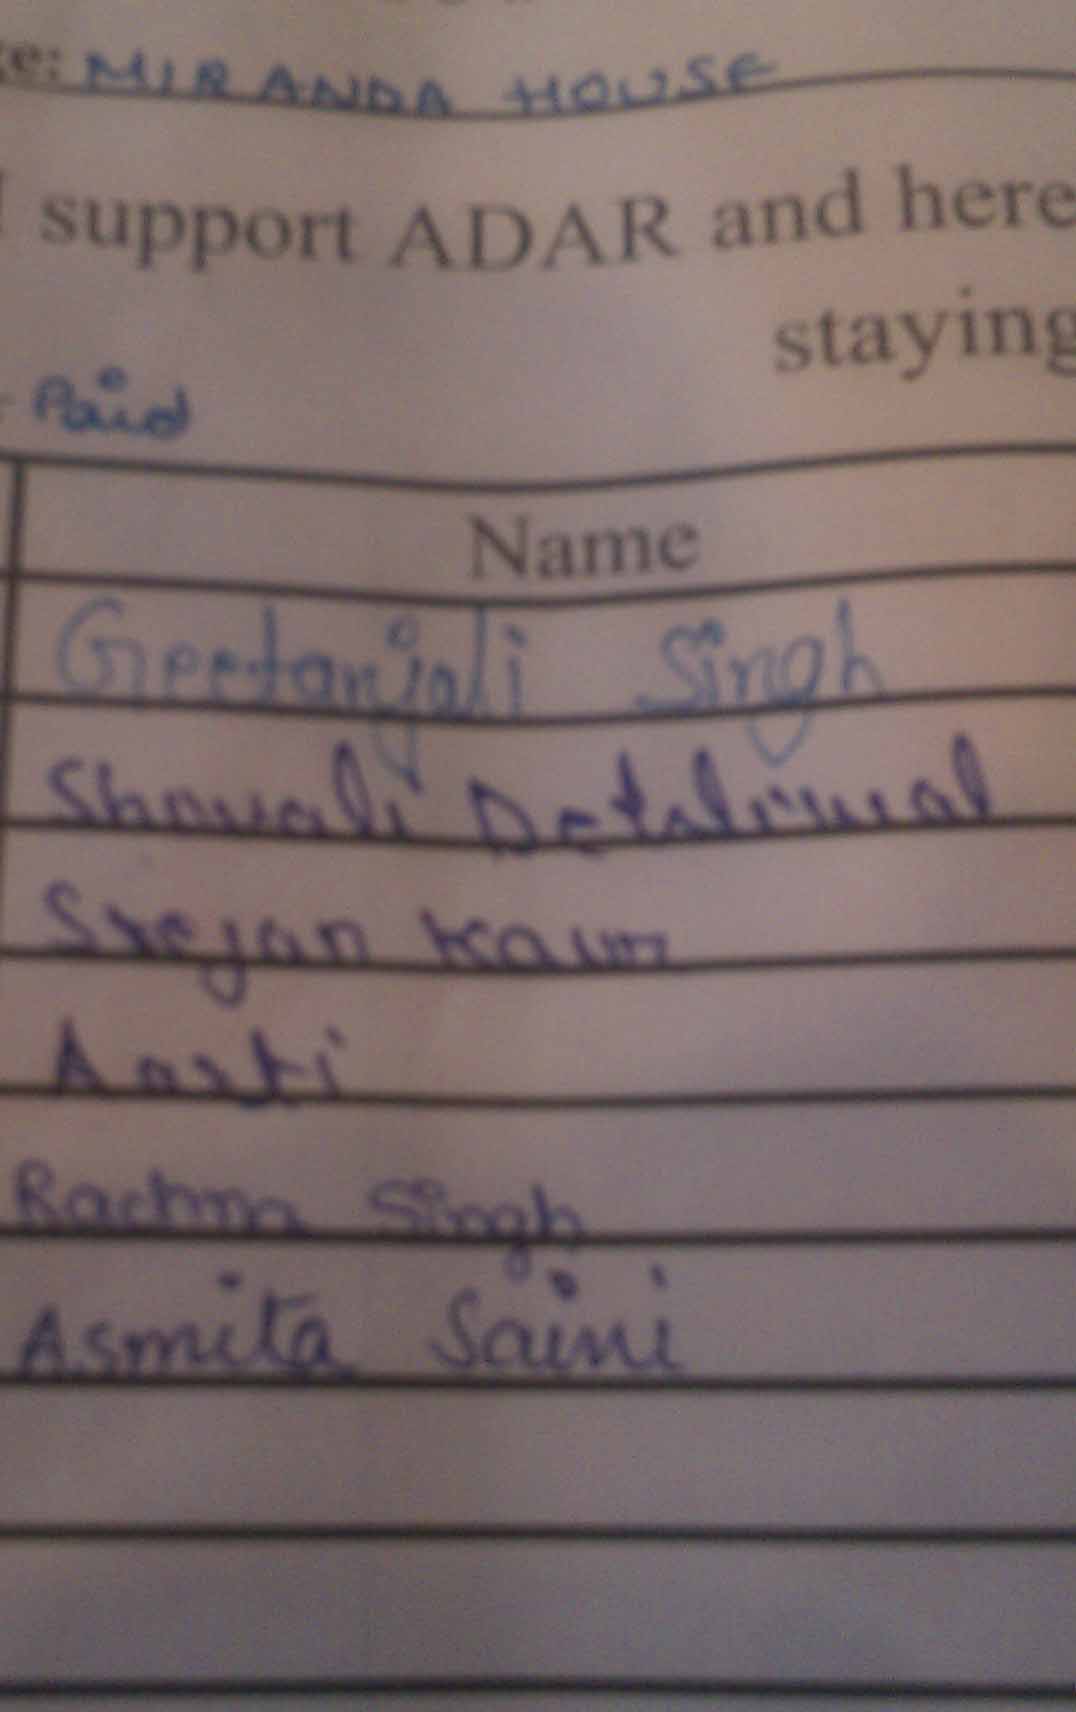 e: MIRANDA HOUSE
I support ADAR and here
staying
- Paid
Name
Geetanjali Singh
Shavali
Srejan Kaur
Aarti
Rachna Singh
Asmita Saini